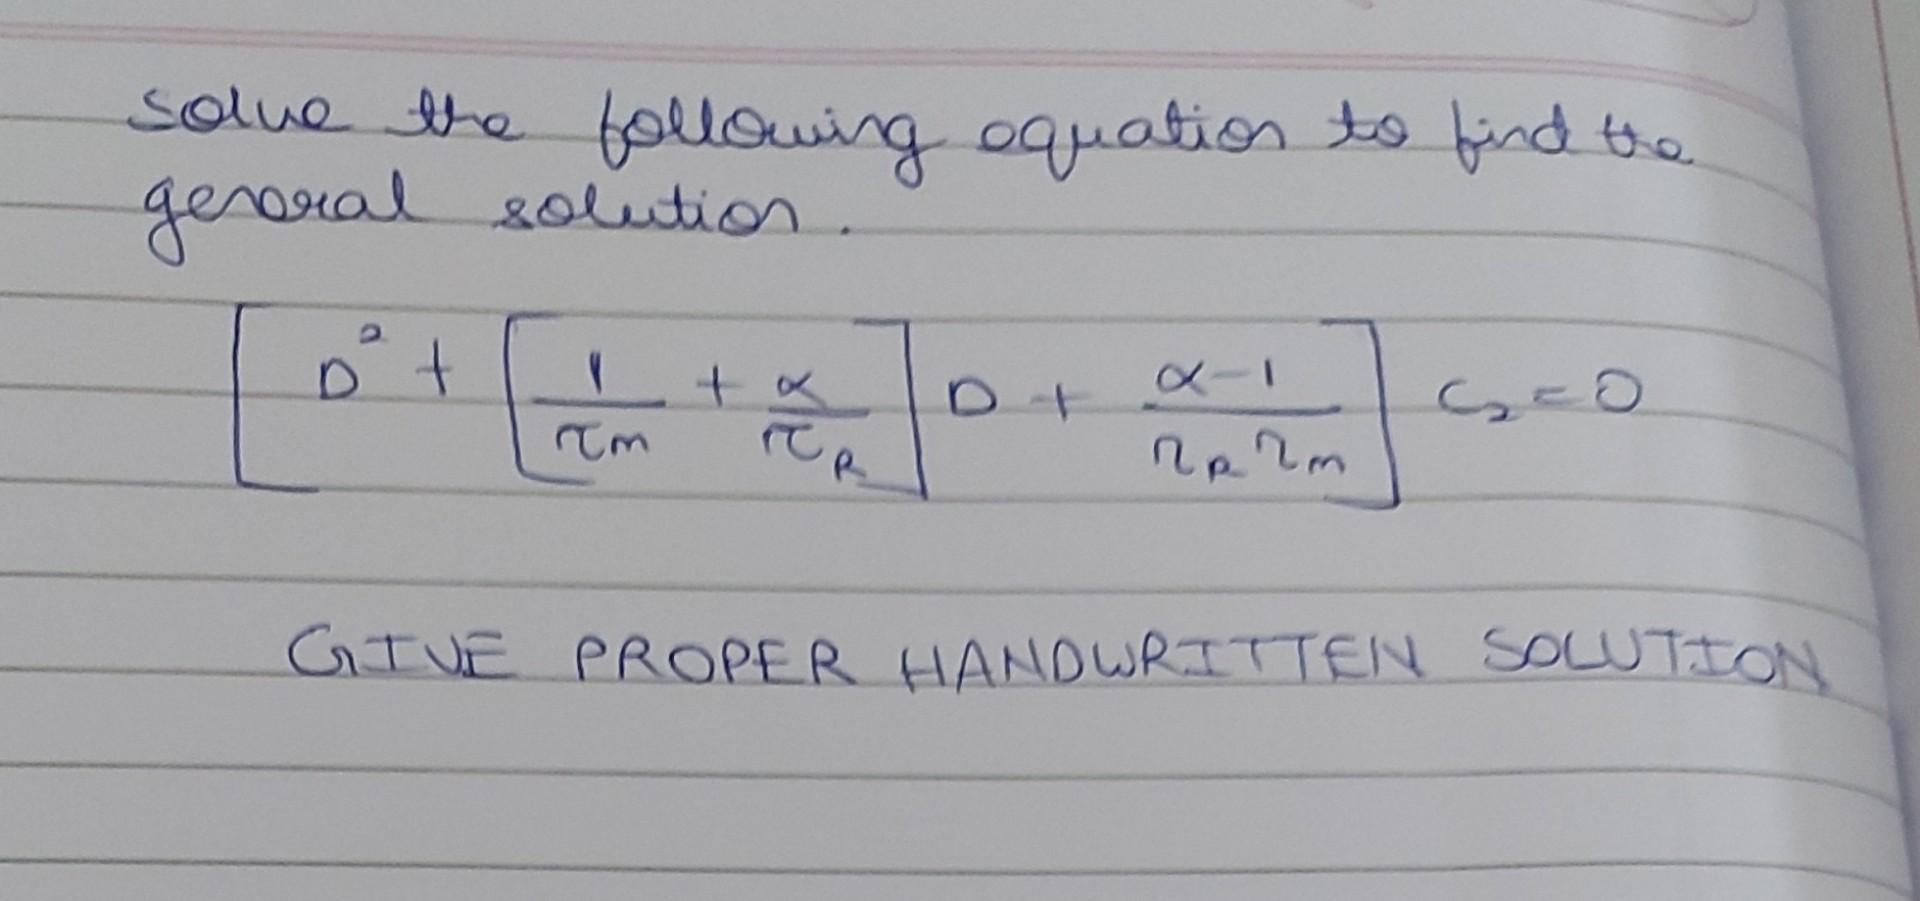 solve the following equation to find the
general solution.
[D² + [1/τm + α/τR] D + α-1/τR τm] C₂ = 0
GIVE PROPER HANDWRITTEN SOLUTION